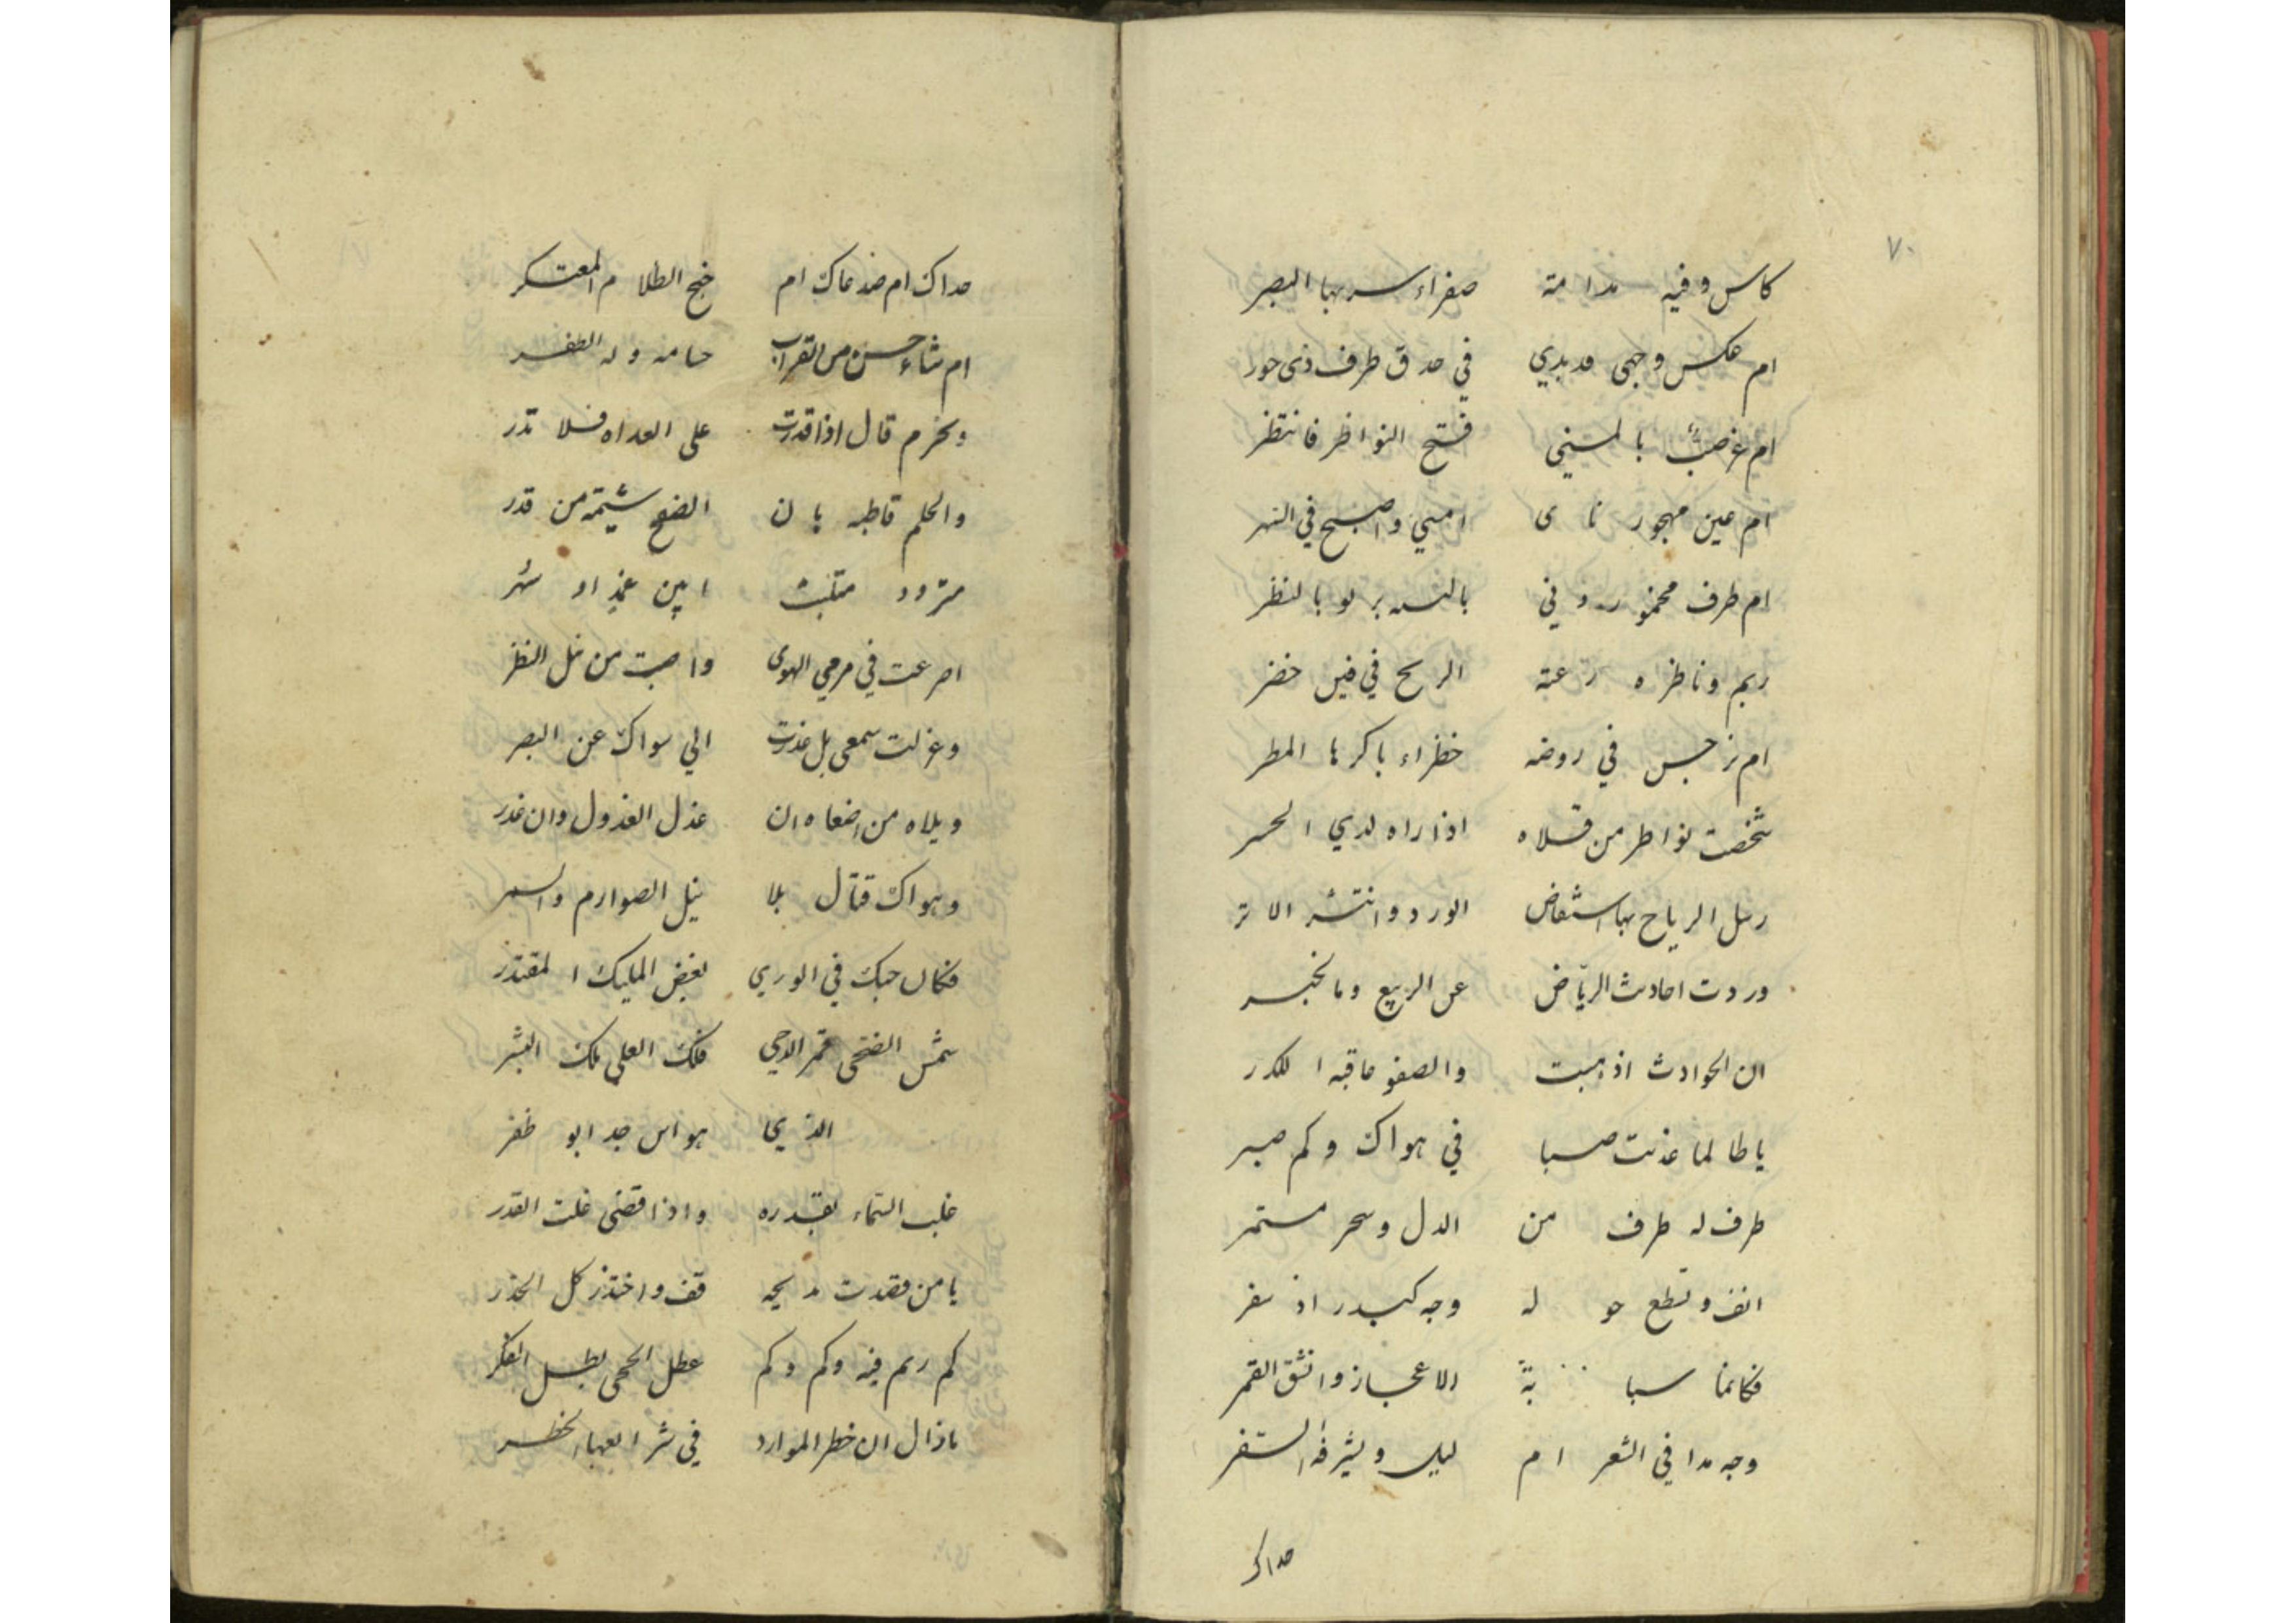 ٧٠
كاس وفيه مدامة صفراء سر بها البصر
ام عكس وجهى قد بدي في حدق طرف ذى حور
ام غصبٌ بالمسني فتح النواظر فانتظر
ام عين مهجور ناى امسي واصبح في النهر
ام طرف مخمور دني بالسه بر لو بالنظر
ريم وناظره رعته الريح في فيس خضر
ام نرجس في روضه خظراء باكرها المطر
شخصت نواطر من قلاه اذا راه لدي الحمر
رسل الرياح بها استفاض الورد وانتشر الاثر
وردت احادث الريّاض عن الربيع وما لخبر
ان الحوادث اذ هبت والصفو عاقبه الكدر
يا طالما عذبت صبا في هواك وكم صبر
طرف له طرف من الدل وسحر مستمر
انف وتطع حو له وجه كبدر اذ سفر
فكانما سبا بة الاعجاز وانشق القمر
وجه بدا في الشعر ام ليل ويشرفه السفر
صداك
صداك ام صدعاك ام جنح الظلام المعتكر
ام شاء حسن من القراب حسامه وله الظفر
وبخرم قال اذا قدرت على العداه فلا تذر
والحلم قاطبه بان الصفح شيمة من قدر
متردد متلبث ابين غمد او شهر
اصرعت في مرمي الهوى واصبت من نبل النظر
وعزلت سمعى بل غدرت الي سواك عن البصر
ويلاه من اضعاه ان عذل العذول وان غدر
وهواك قتال بلا نيل الصوارم والسمر
فكان حبك في الوري بغض المليك المقتدر
شمس الضحى قمر الدجي فلك العلي ملك البشر
الذي يحا هو اس جد ابو ظفر
غلب السماء بقدره واذا قضى غلت القدر
يا من قصدت مديحه قف واختذر كل الحذر
كم ريم فيه وكم وكم عطل الحجى بطل الفكر
ما ذال ان خطر الموارد في شر البهاء الخطر